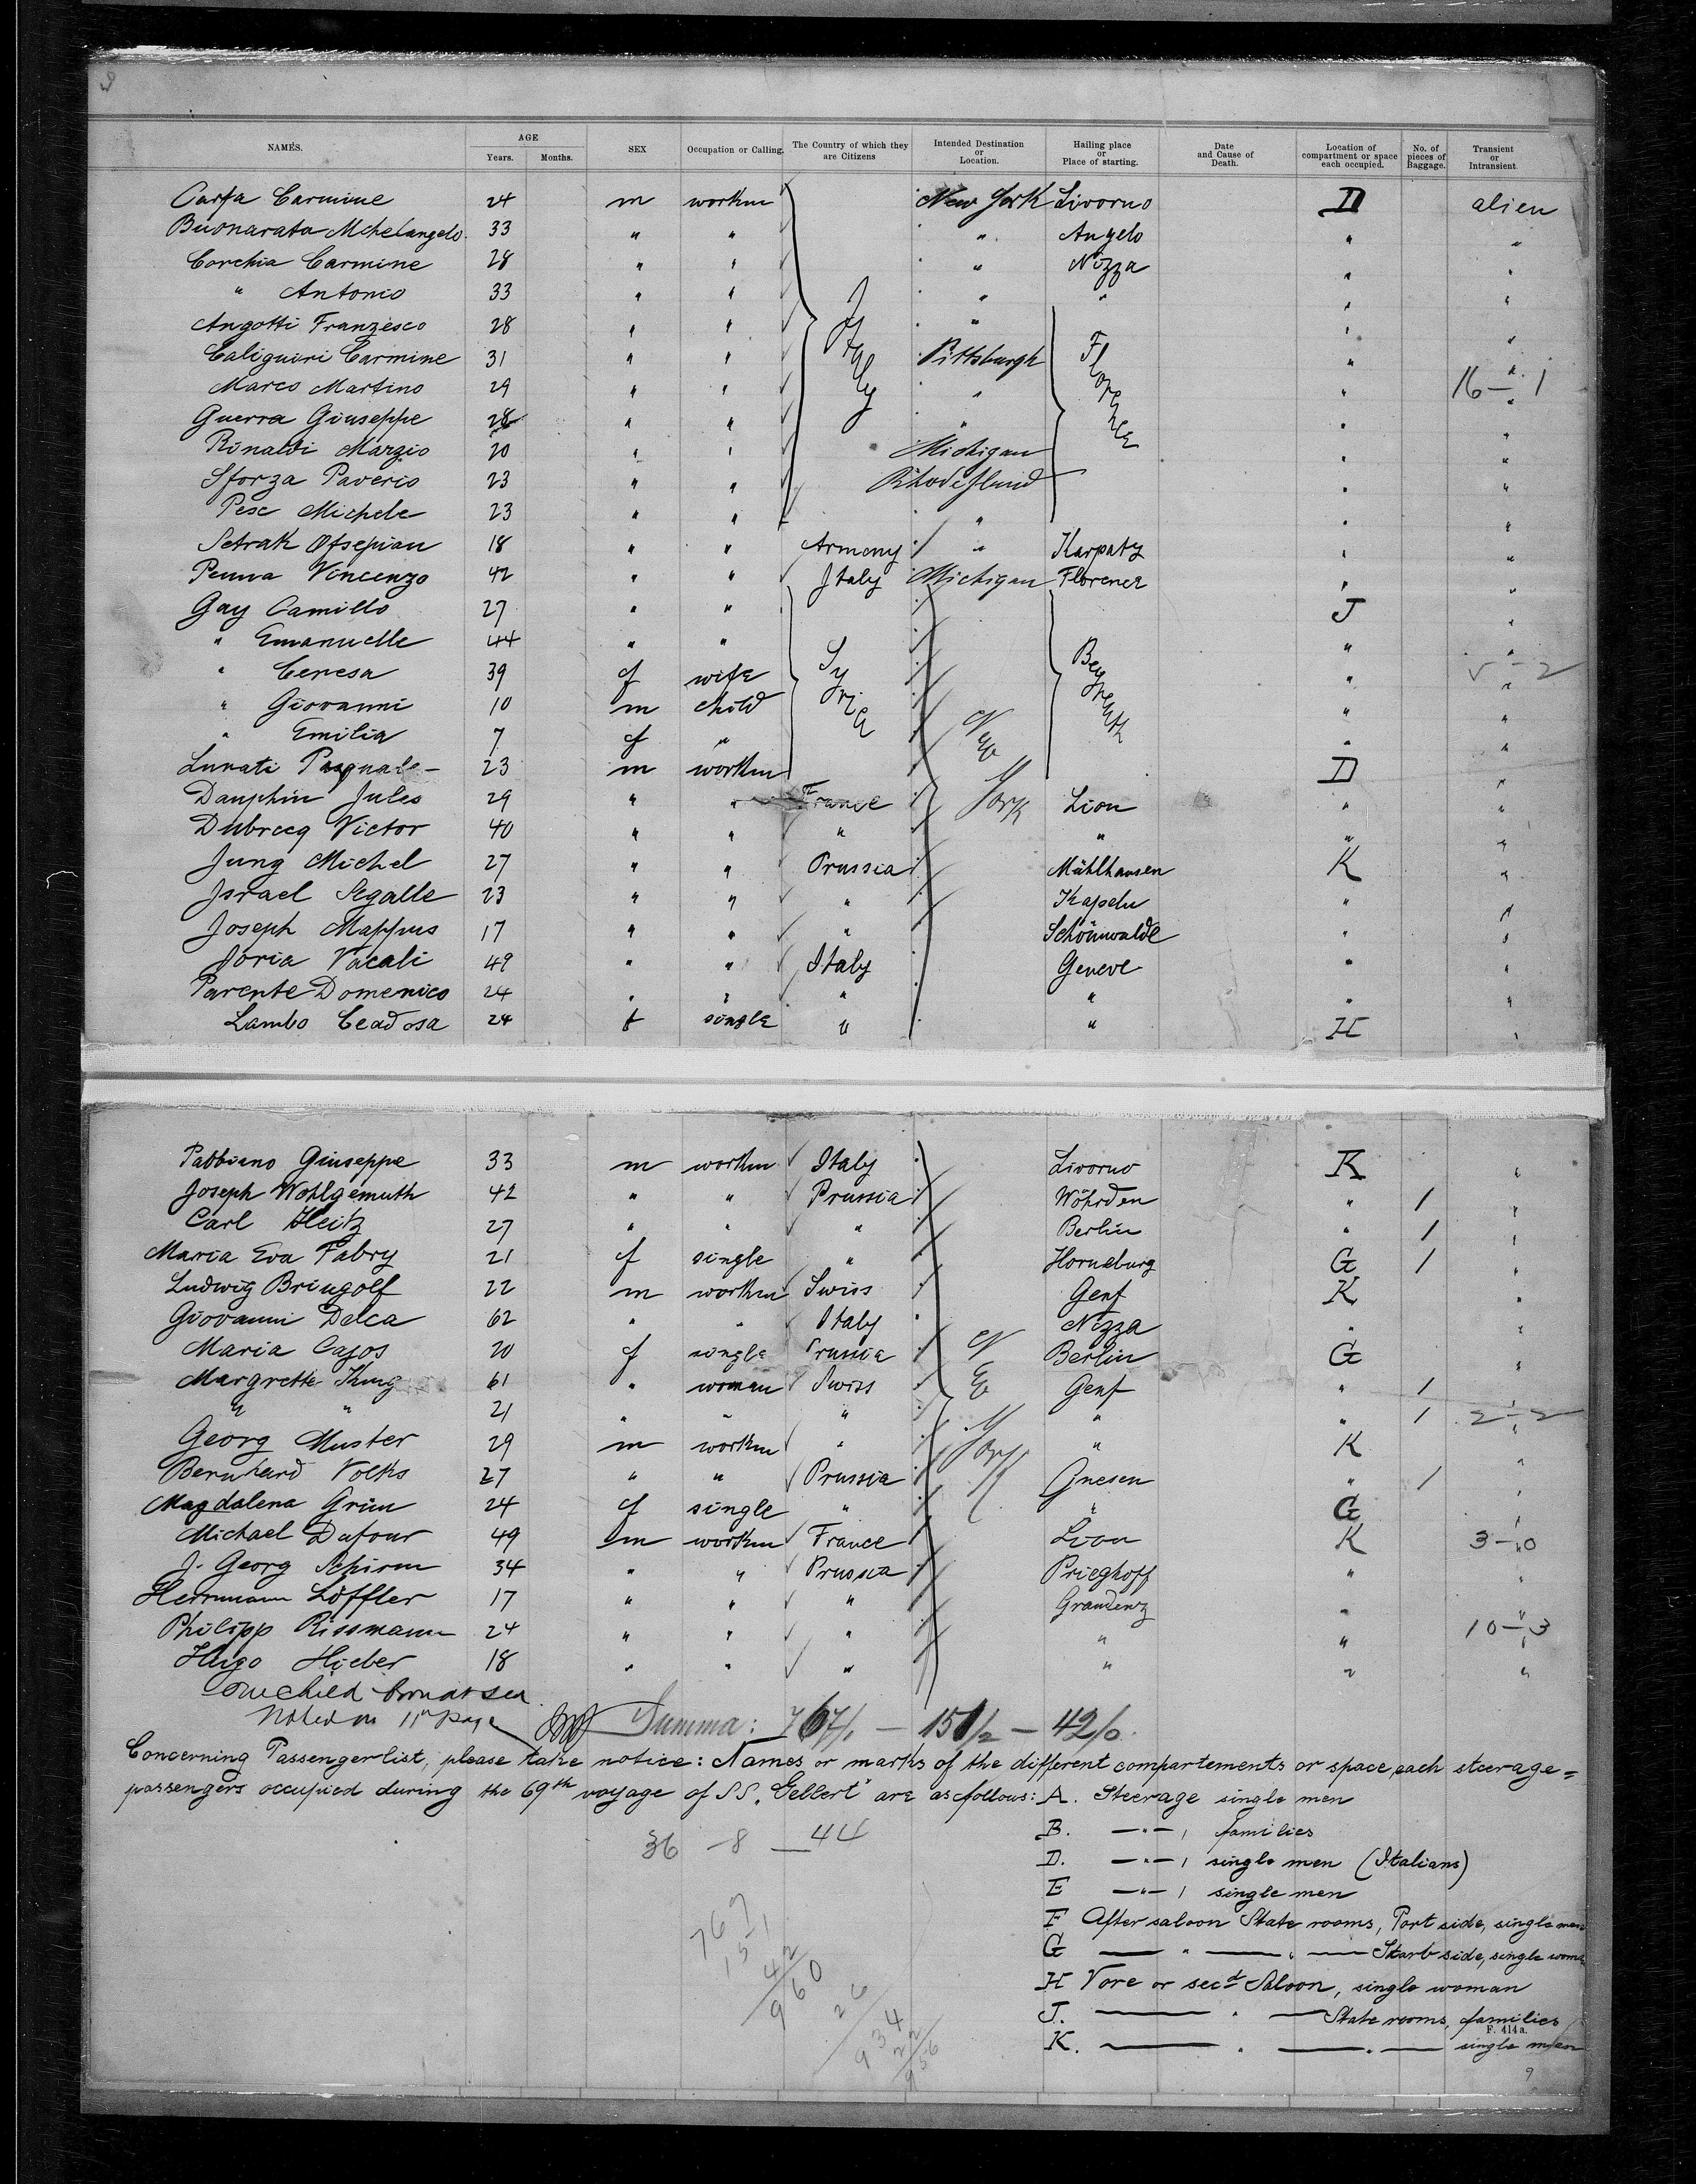 NAMES. AGE Years. Months. SEX Occupation or Calling. The Country of which they are Citizens Intended Destination or Location. Hailing place or Place of starting. Date and Cause of Death. Location of compartment or space each occupied. No. of pieces of Baggage. Transient or Intransient.
Carfa Carmine 24 m workm New York Livorno D alien
Buonarata Mchelangelo 33 " " " Angelo " "
Corchia Carmine 28 " " " Nizza " "
" Antonio 33 " " " " " "
Angotti Franzesco 28 " " Italy " Florence " "
Caliguiri Carmine 31 " " Pittsburgh " "
Marco Martino 29 " " " " " 16 — 1
Guerra Giuseppe 28 " " " " "
Rinaldi Margio 20 " " Michigan " "
Sforza Paverio 23 " " Rhode Island " "
Pese Michele 23 " " " " "
Setrak Ofsepian 18 " " Armeny " Karpaty " "
Penna Vincenzo 42 " " Italy Michigan Florence " "
Gay Camillo 27 " " J "
" Emanuelle 44 " " Syria New York Beyreuth " "
" Ceresa 39 f wife " " 5 – 2
" Giovanni 10 m child " "
" Emilia 7 f " " "
Lunati Pasquale 23 m workm D "
Dauphin Jules 29 " " France Lion " "
Dubrecq Victor 40 " " " " " "
Jung Michel 27 " " Prussia Mühlhausen K "
Israel Segalle 23 " " " Kapeln " "
Joseph Mappus 17 " " " Schönwalde " "
Joria Vacali 49 " " Italy Geneve " "
Parente Domenico 24 " " " " " "
Lambo Ceadosa 24 f single " " H "
Pabbiano Giuseppe 33 m workm Italy Livorno K "
Joseph Wohlgemuth 42 " " Prussia Wöhrden " 1 "
Carl Heitz 27 " " " Berlin " 1 "
Maria Eva Fabry 21 f single " Horneburg G 1 "
Ludwig Bringolf 22 m workm Swiss Genf K "
Giovanni Delca 62 " " Italy Nizza " "
Maria Cajos 20 f single Prussia New York Berlin G "
Margrette King 61 " woman Swiss Genf " 1 "
" " 21 " " " " " 1 2 – 2
Georg Muster 29 m workm " " K "
Bernhard Volks 27 " " Prussia Gnesen " 1 "
Magdalena Grim 24 f single " " G "
Michael Dufour 49 m workm France Lion K 3 – 0
J. Georg Schirm 34 " " Prussia Prieghoff " "
Herrmann Löffler 17 " " " Graudenz " "
Philipp Rissmann 24 " " " " " 10 – 3
Hugo Hieber 18 " " " " " "
One child born at sea
Noted on 11th page Summa: 767/1 — 151/2 — 42/0.
Concerning Passengerlist, please take notice: Names or marks of the different compartements or space, each steerage=
passengers occupied during the 69th voyage of SS. "Gellert" are as follows: A. Steerage single men
36 – 8 — 44
B. — " — , families
D. — " — , single men (Italians)
E — " — , single men
F After saloon State rooms, Port side, single men
G — " — " — Starb side, single woma
H Vore or secd Saloon, single woman
J. — " — State rooms, families
F. 414a.
K. — " — " — single men
767
151
42
960
26
934
22
956
9